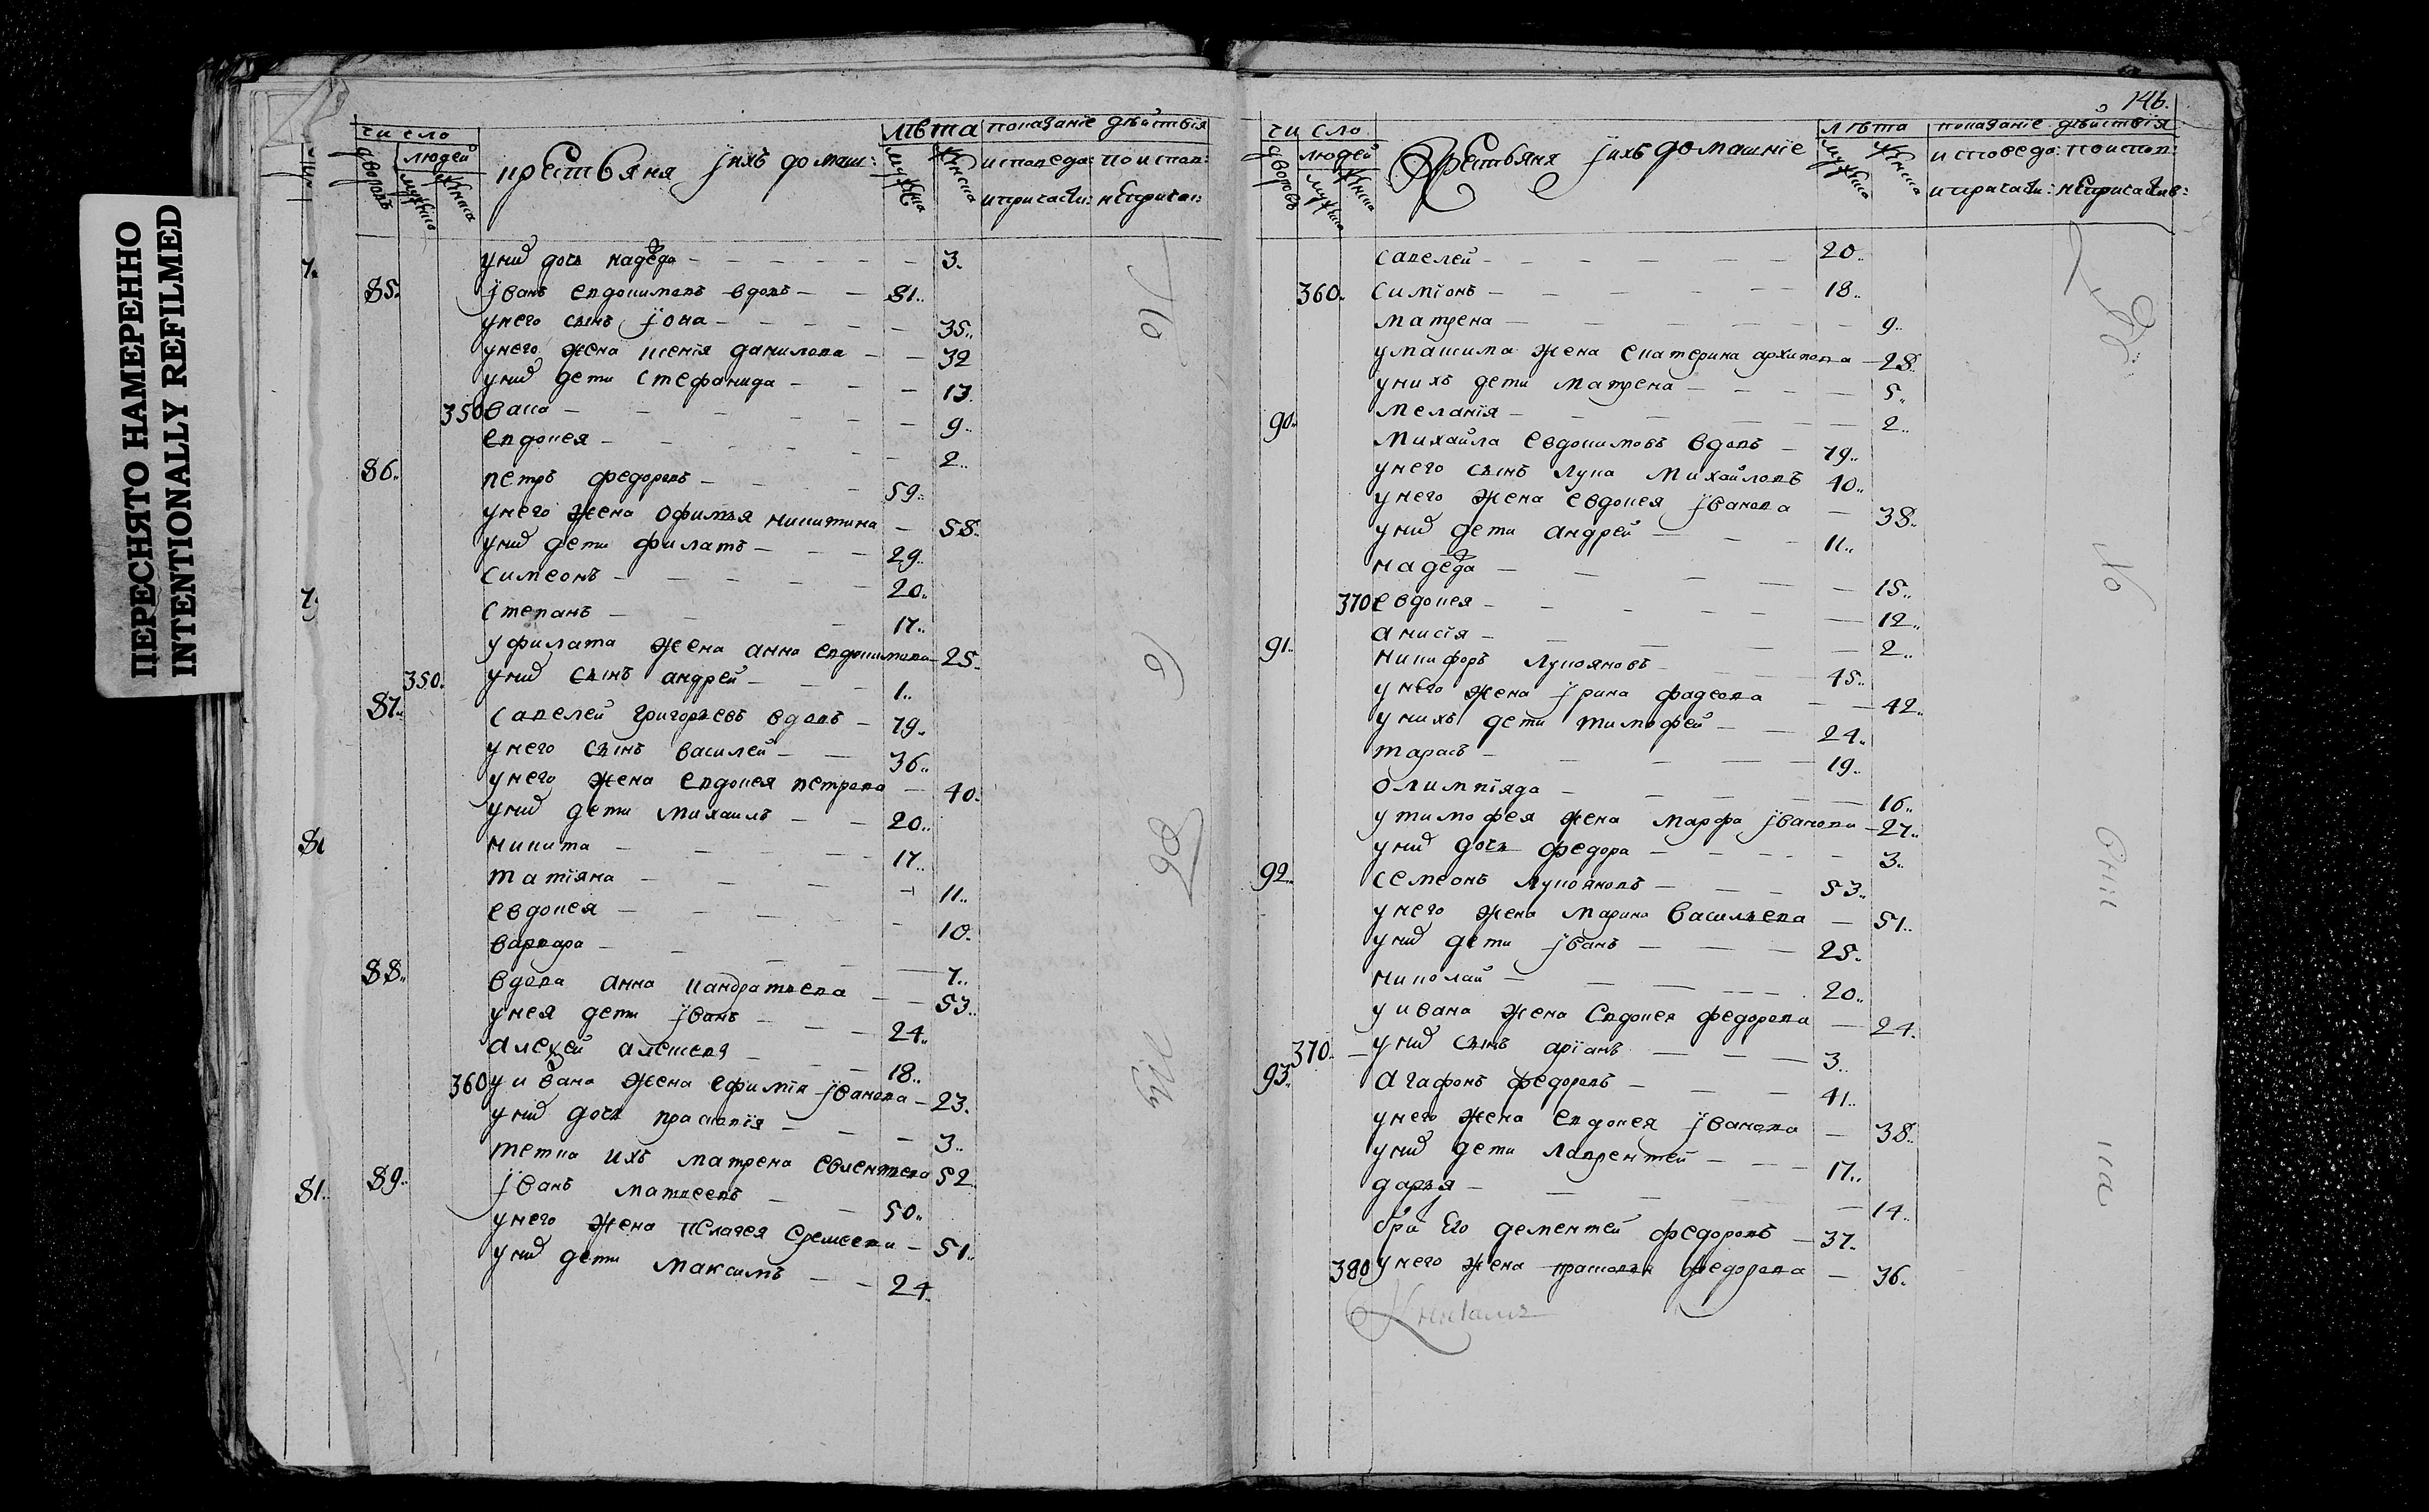 ПЕРЕСНЯТО НАМЕРЕННО
INTENTIONALLY REFILMED
число
лѣта показанiе дѣйствiя
дворовъ людей крестьяня їихъ домаш: мужеска женска исповеда: по испов:
мужеска женска и причасти: не причас:
у них дочь надежда 3.
85. їванъ евдокимовъ вдовъ 81..
у него сынъ їона 35..
у него жена ксенiя данилова 32
у них дети стефанида 13.
350 васа 9..
евдокея 2..
86.. петръ федоровъ 59..
у него жена офимья никитина 58..
у них дети филатъ 29..
симеонъ 20..
степанъ 17..
у филата жена анна евдокимова 25..
350. у них сынъ андрей 1..
87.. савелей григорьевъ вдовъ 79..
у него сынъ василей 36..
у него жена евдокея петрова 40.
у них дети михаилъ 20..
никита 17..
татiяна 11..
евдокея 10.
варвара 7..
88.. вдова анна кандратьева 53..
у нея дети їванъ 24..
алексей алексея 18..
360 у ивана жена ефимiя їванова 23.
у них дочь прасковiя 3..
тетка ихъ матрена 52.
89.. їванъ матвеевъ 50..
у него жена пелагея еремеева 51..
у них дети максимъ 24.
146.
число
лѣта показанiе дѣйствiя
дворовъ людей Крестьяня їихъ домашнiе мужеска женска исповеда: по испов:
мужеска женска и причасти: не причастив:
савелей 20..
360. симiонъ 18..
матрена 9..
у максима жена екатерина архипова 28.
у нихъ дети матрена 5..
меланiя 2..
90.. михайла евдокимовъ вдовъ 79..
у него сынъ лука михайловъ 40..
у него жена евдокея їванова 38..
у них дети андрей 11..
надежда 15..
370 евдокея 12..
анисiя 2..
91.. никифоръ лукояновъ 45..
у него жена їрина фадеева 42.
у нихъ дети тимофей 24..
тарасъ 19..
олимпiяда 16..
у тимофея жена марфа їванова 27..
у них дочь федора 3..
92.. семеонъ лукояновъ 53..
у него жена марина васильева 51..
у них дети їванъ 25.
николай 20..
у ивана жена евдокея федорова 24.
370. у них сынъ арiанъ 3..
93.. агафонъ федоровъ 41..
у него жена евдокея їванова 38..
у них дети лаврентей 17..
дарья 14..
бра его дементей федоровъ 37.
380 у него жена прасковья федорова 36.